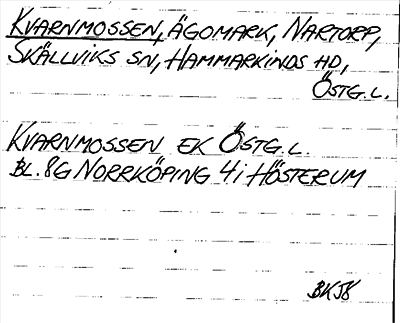 KVARNMOSSEN, ÄGOMARK, NARTORP,
SKÄLLVIKS SN, HAMMARKINDS HD,
ÖSTG. L.
KVARNMOSSEN EK ÖSTG. L.
BL. 8G NORRKÖPING 4i HÖSTERUM